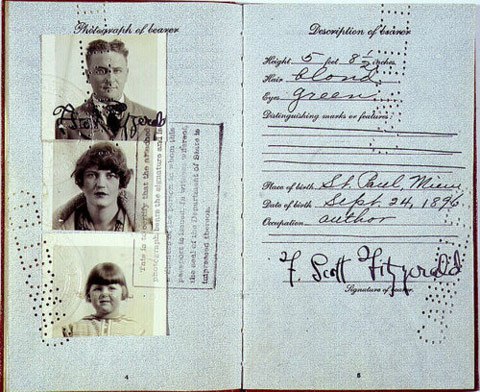 Photograph of bearer
F. Scott Fitzgerald
This is to certify that the attached
photograph bears the signature and is
the seal of the Department of State is
impressed thereon.
4
Description of bearer
Height 5 feet 8 1/2 inches.
Hair blond
Eyes green
Distinguishing marks or features:
Place of birth St. Paul, Minn
Date of birth Sept. 24, 1896
Occupation author
F. Scott Fitzgerald
Signature of bearer.
5